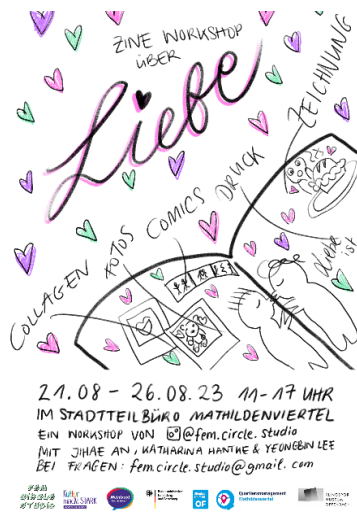 ZINE WORKSHOP
ÜBER
Liebe
ZEICHNUNG
DRUCK
COMICS
FOTOS
COLLAGEN
Liebe
ist
21.08 - 26.08.23 11-17 UHR
IM STADTTEILBÜRO MATHILDENVIERTEL
EIN WORKSHOP VON @fem.circle.studio
MIT JIHAE AN, KATHARINA HANTKE & YEONGBIN LEE
BEI FRAGEN: fem.circle.studio@gmail.com
FEM
CIRCLE
STUDIO
Kultur
macht STARK
OF
Quartiersmanagement
Mathildenviertel